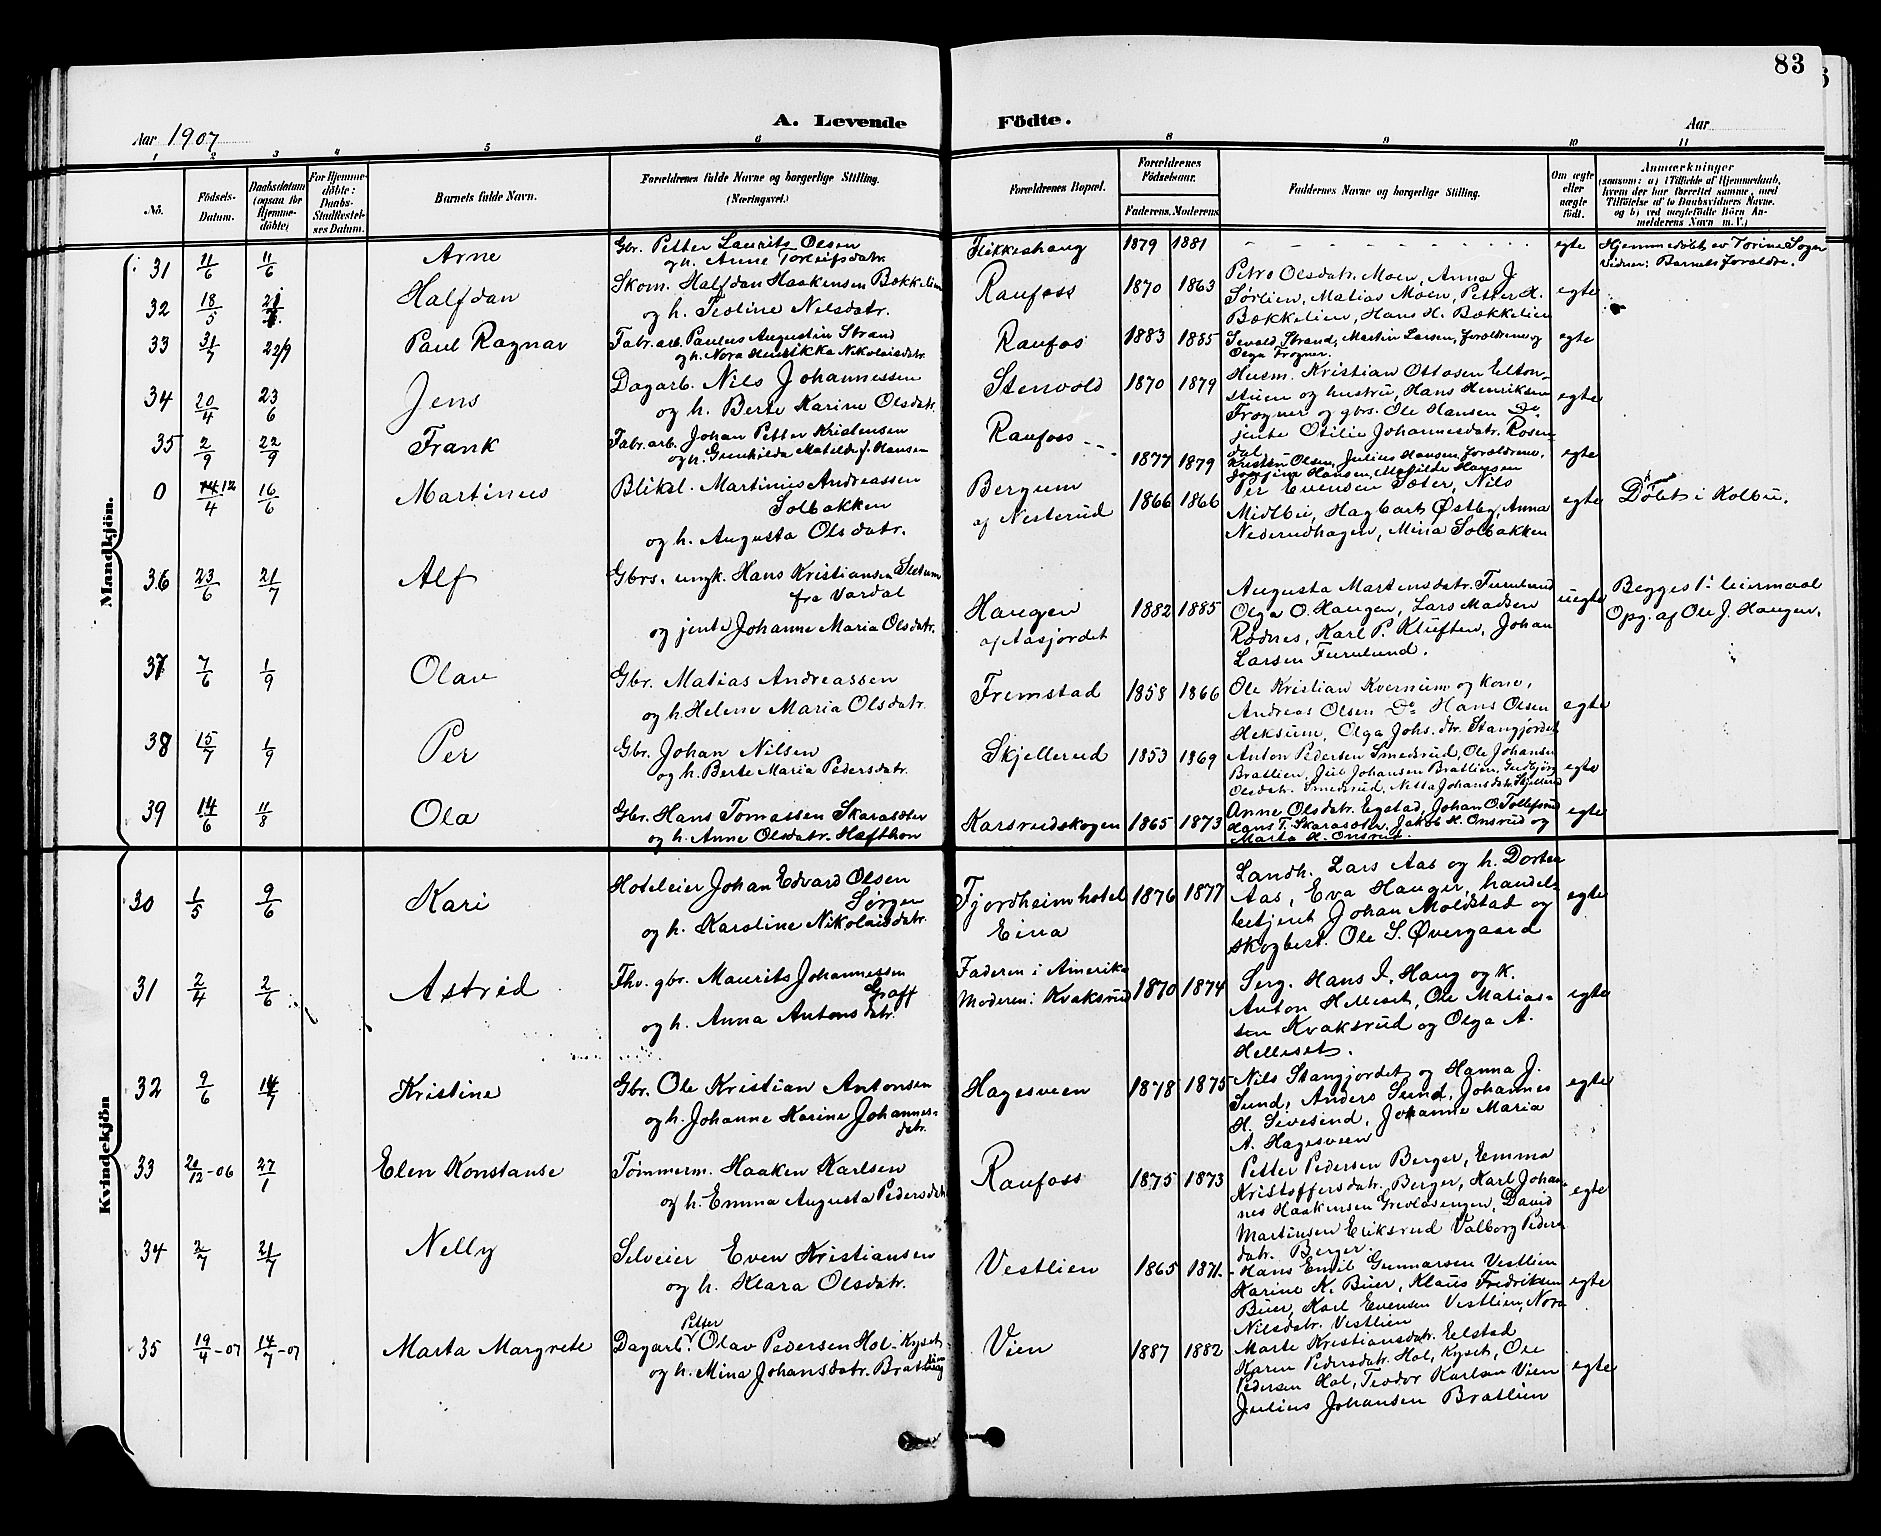 83
A. Levende Födte.
Aar 1907
Aar
1 2 3 4 5 6 8 9 10 11
No.
Födsels-Datum.
Daabsdatum (ogsaa for Hjemme-döbte)
For Hjemme-döbte: Daabs-Stadfæstel-ses Datum.
Barnets fulde Navn.
Forældrenes fulde Navne og borgerlige Stilling. (Næringsvei.)
Forældrenes Bopæl.
Forældrenes Födselsaar.
Faderens. Moderens
Faddernes Navne og borgerlige Stilling.
Om ægte eller uægte födt.
Anmærkninger
(saasom: a) i Tilfælde af Hjemmedaab, hvem der har forrettet samme, med Tilföielse af to Daabsvidners Navne, og b) ved uægtefödte Börn Anmelderens Navn m. V.)
Mandkjön.
31 11/6 11/6 Arne
Gbr. Petter Laurits Olsen
og h. Anne Torleifsdatr.
Flikkeshaug 1879 1881 egte
Hjemmedøbt av Torine Sogn
Vidner: Barnets foraldre.
32 18/5 Halfdan
Skom. Halfdan Haakensen Bækkelien
og h. Teoline Nilsdatr.
Raufoss 1870 1863
Petra Olsdatr. Moen, Anna J.
Sørlien, Matias Moen, Petter H.
Bækkelien, Hans H. Bækkelien
egte
33 31/7 22/9 Paul Ragnar
Fabr. arb. Paulus Augustin Strand
og h. Nora Henrikka Nikolaisdatr.
Raufos 1883 1885
Sevald Strand, Martin Larsen, foraldrene og
Olga Frogner.
egte
34 20/4 23/6 Jens
Dagarb. Nils Johannessen
og h. Berte Karine Olsdatr.
Stenvold 1870 1879
Husm. Kristian Ottosen Elton-
stuen og hustru, Hans Henriksen
Frogner og gbrs. Ole Hansen Do
jente Otilie Johannesdatr. Rosen-
dal
egte
35 2/9 22/9 Frank
Fabr. arb. Johan Petter Kristensen
og h. Gunhilda Matilde f. Hansen
Raufoss 1877 1879
Kristen Olsen, Julius Hansen, foraldrene,
Jørgine Hansen, Matilde Hansen
egte
0 14.12/4 16/6 Martinus
Bliksl. Martinius Andreassen
Solbakken
og h. Augusta Olsdatr.
Bergum
af Nesterud 1866 1866
Per Evensen Sæter, Nils
Midtbu, Hagbart Østby, Anna
Nederudhagen, Mina Solbakken
egte
Døbt i Kolbu.
36 23/6 21/7 Alf
Gbrs. ungk. Hans Kristiansen Sletum
fra Vardal
og jente Johanne Maria Olsdatr.
Haugen
af Aasjordet 1882 1885
Augusta Martensdatr. Furulund
Olga O. Haugen, Lars Madsen
Rødnes, Karl P. Kluften, Johan
Larsen Furulund.
uegte
Begges 1. leiermaal
Opg. af Ole J. Haugen.
37 7/6 1/9 Olav
Gbr. Matias Andreassen
og h. Helene Maria Olsdatr.
Fremstad 1858 1866
Ole Kristian Kvernum og kone,
Andreas Olsen Do Hans Olsen
Heksum, Olga Johs. dtr. Stangjordet
egte
38 15/7 1/9 Per
Gbr. Johan Nilsen
og h. Berte Maria Pedersdatr.
Skjellerud 1853 1869
Anton Pedersen Smedsrud, Ole Johansen
Bratlien, Juli Johansen Bratlien, Gudbjørg
Olsdatr. Smedsrud, Netta Johansdatr. Skjellerud
egte
39 14/6 11/8 Ola
Gbr. Hans Tomassen Skarasæter
og h. Anne Olsdatr. Hafthon
Karsrudskogen 1865 1873
Anne Olsdatr. Egstad, Johan O. Tollefsrud
Hans T. Skarasæter, Jakob H. Onsrud og
Marta H. Onsrud.
egte
Kvindekjön
30 1/5 9/6 Kari
Hoteleier Johan Edvard Olsen
Sørgen
og h. Karoline Nikolaisdatr.
Fjordheim hotel
Eina 1876 1877
Landh. Lars Aas og h. Dortea
Aas, Eva Hauger, handels-
betjent Johan Moldstad og
skogbest. Ole S. Øvergaard
egte
31 2/4 2/6 Astrid
Fhv. gbr. Maurits Johannessen
Graff
og h. Anna Antonsdatr.
Faderen i Amerika
Moderen: Kvaksrud 1870 1874
Serg. Hans I. Haug og k.
Anton Helleset, Ole Matias-
sen Kvaksrud og Olga A.
Helleset.
egte
32 9/6 14/7 Kristine
Gbr. Ole Kristian Antonsen
og h. Johanne Karine Johannes-
datr.
Hagesveen 1878 1875
Nils Stangjordet og Hanna J.
Sund, Anders Sund, Johannes
H. Sivesind, Johanne Maria
A. Hagesveen
egte
33 20/12-06 27/1 Elen Konstanse
Tømmerm. Haaken Karlsen
og h. Emma Augusta Pedersdatr.
Raufoss 1875 1873
Petter Pedersen Berger, Emma
Kristoffersdatr. Berger, Karl Johan-
nes Haakensen Grevlosengen, David
Martinsen Eriksrud Valborg Peders-
datr. Berger.
egte
34 2/7 21/7 Nelly
Selveier Even Kristiansen
og h. Klara Olsdatr.
Vestlien 1865 1871
Hans Emil Gunnarsen Vestlien
Karine K. Buer, Klaus Fredriksen
Buer, Karl Evensen Vestlien, Nora
Nilsdatr. Vestlien
egte
35 19/4-07 14/7-07 Marta Margrete
Petter
Dagarb. Olav Pedersen Hol- Kyset
og h. Mina Johansdatr. Bratlien
Vien 1887 1882
Marte Kristiansdatr. Eelstad
Karen Pedersdatr. Hol, Kyset, Ole
Pedersen Hol, Teodor Karlsen Vien
Julius Johansen Bratlien
egte